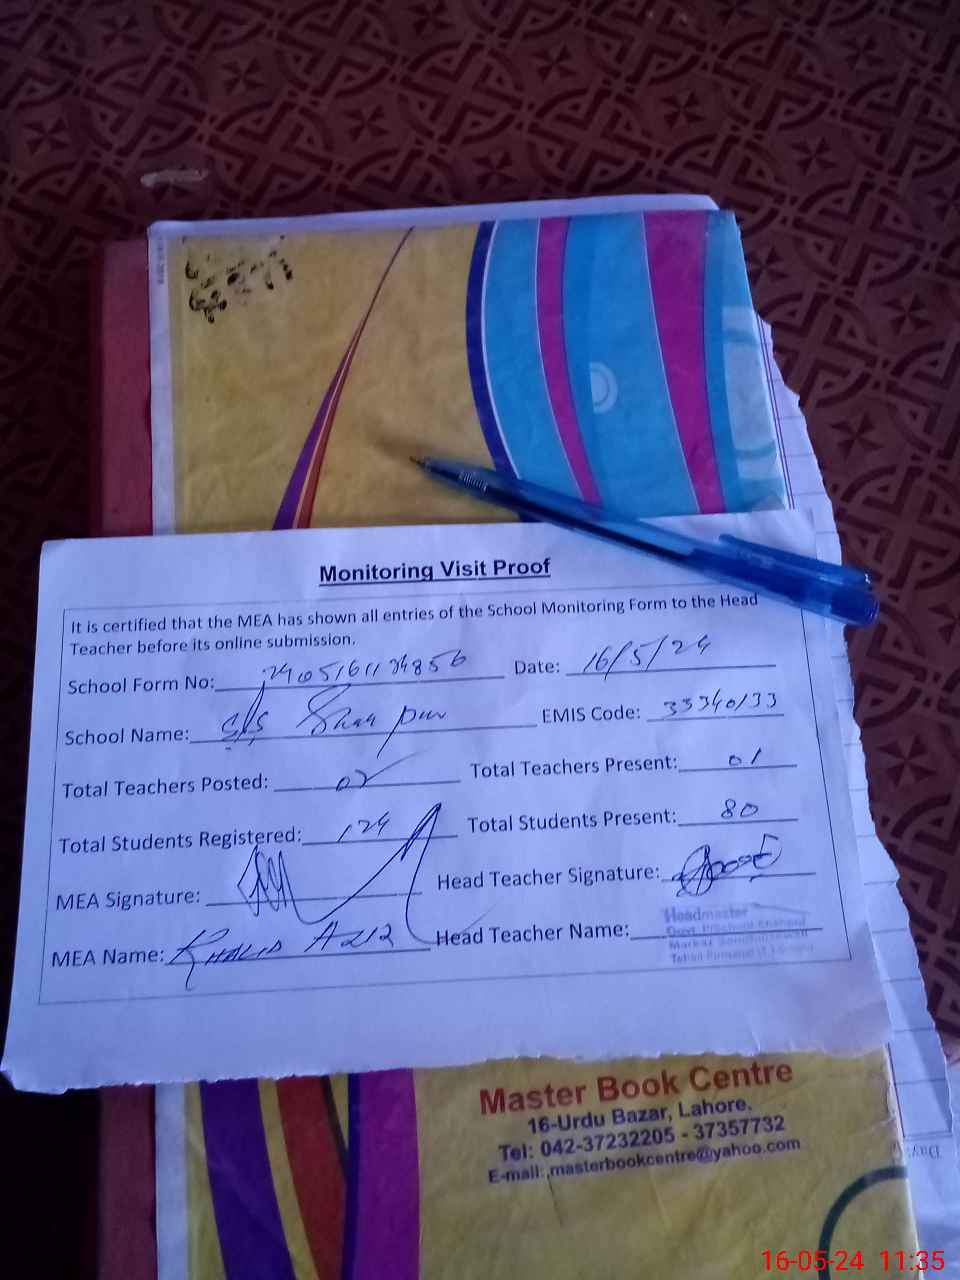 Monitoring Visit Proof
It is certified that the MEA has shown all entries of the School Monitoring Form to the Head
Teacher before its online submission.
School Form No: Date: 16/5/24
School Name: EMIS Code: 33340133
Total Teachers Posted: 02 Total Teachers Present: 01
Total Students Registered: 124 Total Students Present: 80
MEA Signature: Head Teacher Signature:
MEA Name: KHALID AZIZ Head Teacher Name:
Headmaster
Master Book Centre
16-Urdu Bazar, Lahore.
Tel: 042-37232205 - 37357732
E-mail: masterbookcentre@yahoo.com
Day:
16-05-24 11:35